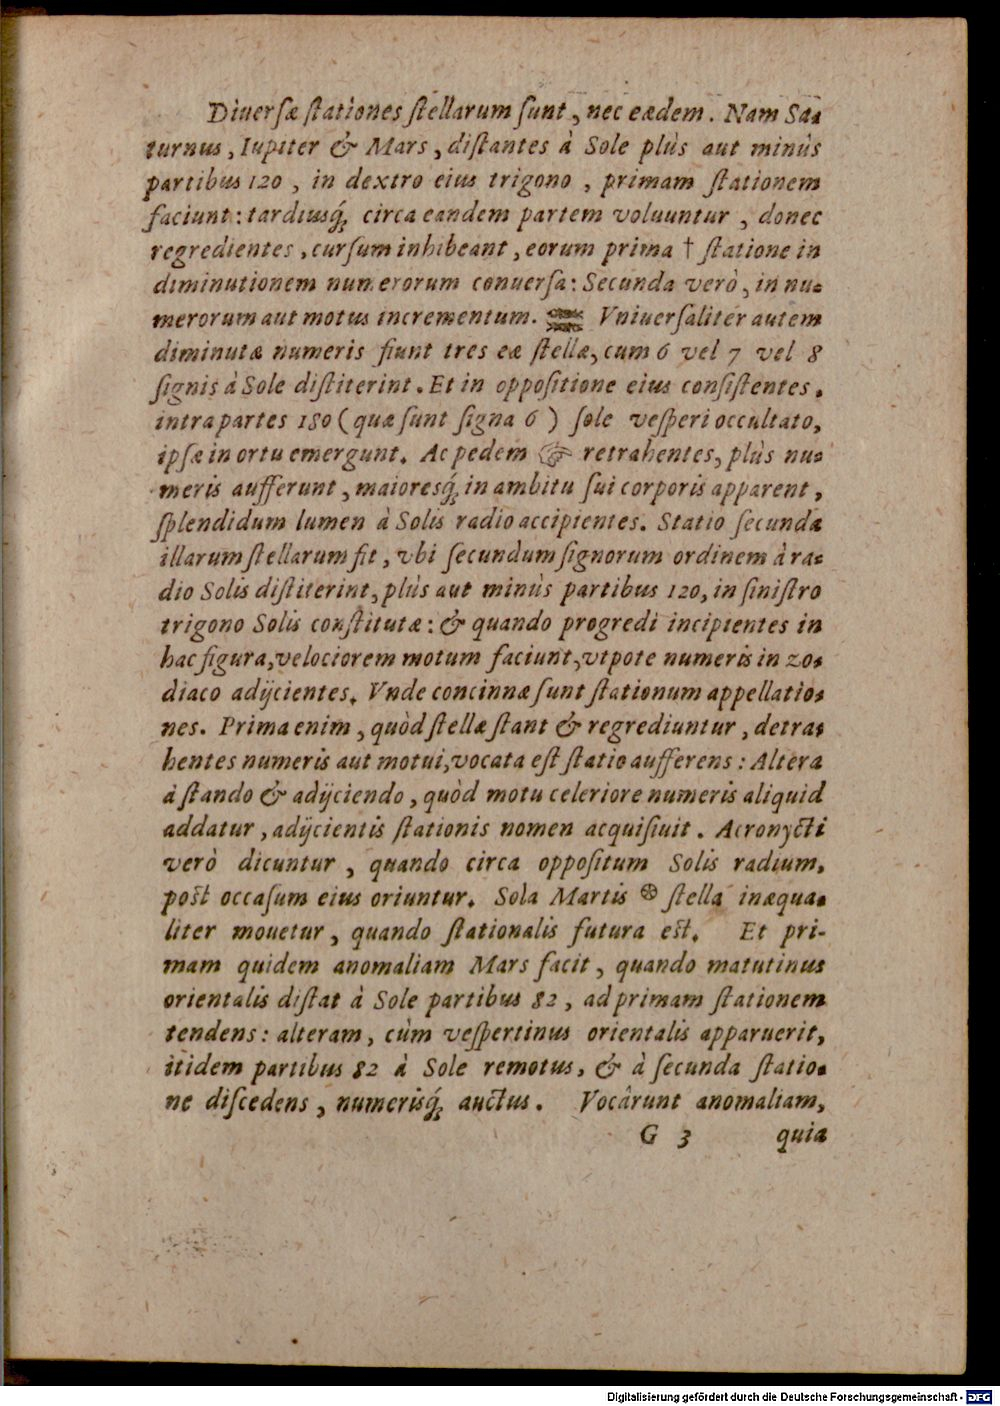 Diuersæ stationes stellarum sunt, nec eædem. Nam Sa-
turnus, Iupiter & Mars, distantes à Sole plùs aut minùs
partibus 120, in dextro eius trigono, primam stationem
faciunt: tardiusq́; circa eandem partem voluuntur, donec
regredientes, cursum inhibeant, eorum prima † statione in
diminutionem numerorum conuersa: Secunda verò, in nu-
merorum aut motus incrementum. Vniuersaliter autem
diminutæ numeris fiunt tres eæ stellæ, cum 6 vel 7 vel 8
signis à Sole distiterint. Et in oppositione eius consistentes.
intra partes 180 (quæ sunt signa 6) sole vesperi occultato,
ipsæ in ortu emergunt. Ac pedem ☞ retrahentes, plùs nu-
meris aufferunt, maioresq́; in ambitu sui corporis apparent,
splendidum lumen à Solis radio accipientes. Statio secunda
illarum stellarum fit, vbi secundum signorum ordinem à ra-
dio Solis distiterint, plùs aut minùs partibus 120, in sinistro
trigono Solis constitutæ: & quando progredi incipientes in
hac figura, velociorem motum faciunt, vtpote numeris in zo-
diaco adijcientes. Vnde concinnæ sunt stationum appellatio-
nes. Prima enim, quòd stellæ stant & regrediuntur, detra-
hentes numeris aut motui, vocata est statio aufferens: Altera
à stando & adijciendo, quòd motu celeriore numeris aliquid
addatur, adijcientis stationis nomen acquisiuit. Acronycti
verò dicuntur, quando circa oppositum Solis radium,
post occasum eius oriuntur. Sola Martis ⊛ stella inæqua-
liter mouetur, quando stationalis futura est. Et pri-
mam quidem anomaliam Mars facit, quando matutinus
orientalis distat à Sole partibus 82, ad primam stationem
tendens: alteram, cùm vespertinus orientalis apparuerit,
itidem partibus 82 à Sole remotus, & à secunda statio-
ne discedens, numerisq́; auctus. Vocârunt anomaliam,
G 3 quia
Digitalisierung gefördert durch die Deutsche Forschungsgemeinschaft - DFG